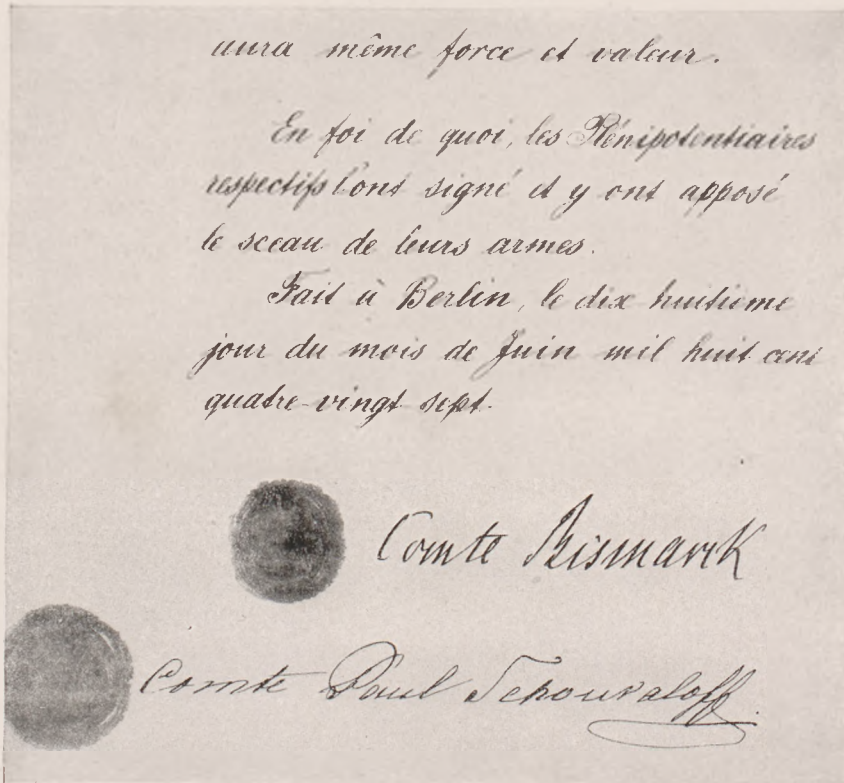 aura même force et valeur.
En foi de quoi, les Plénipotentiaires
respectifs l'ont signé et y ont apposé
le sceau de leurs armes.
Fait à Berlin, le dix huitième
jour du mois de Juin mil huit cent
quatre-vingt sept.
Comte Bismarck
Comte Paul Schouvaloff.